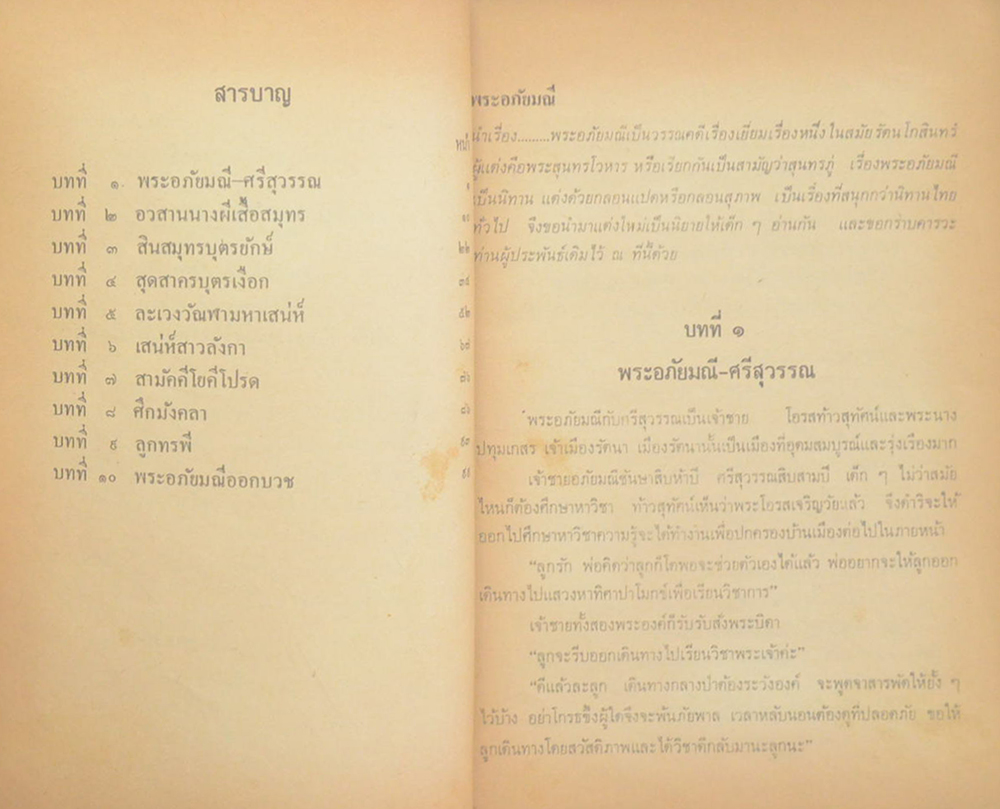 สารบาญ
หน้า
บทที่ ๑. พระอภัยมณี–ศรีสุวรรณ ๑
บทที่ ๒ อวสานนางผีเสื้อสมุทร
บทที่ ๓ สินสมุทรบุตรยักษ์ ๒๒
บทที่ ๔ สุดสาครบุตรเงือก
บทที่ ๕ ละเวงวัณฬามหาเสน่ห์ ๕๒
บทที่ ๖ เสน่ห์สาวลังกา
บทที่ ๗ สามัคคีโยคีโปรด
บทที่ ๘ ศึกมังคลา
บทที่ ๙ ลูกทรพี
บทที่ ๑๐ พระอภัยมณีออกบวช
พระอภัยมณี
นำเรื่อง.........พระอภัยมณีเป็นวรรณคดีเรื่องเยี่ยมเรื่องหนึ่งในสมัยรัตนโกสินทร์
ผู้แต่งคือพระสุนทรโวหาร หรือเรียกกันเป็นสามัญว่าสุนทรภู่ เรื่องพระอภัยมณี
เป็นนิทาน แต่งด้วยกลอนแปดหรือกลอนสุภาพ เป็นเรื่องที่สนุกกว่านิทานไทย
ทั่วไป จึงขอนำมาแต่งใหม่เป็นนิยายให้เด็ก ๆ อ่านกัน และขอกราบคารวะ
ท่านผู้ประพันธ์เดิมไว้ ณ ที่นี้ด้วย
บทที่ ๑
พระอภัยมณี-ศรีสุวรรณ
พระอภัยมณีกับศรีสุวรรณเป็นเจ้าชาย โอรสท้าวสุทัศน์และพระนาง
ปทุมเกสร เจ้าเมืองรัตนา เมืองรัตนานั้นเป็นเมืองที่อุดมสมบูรณ์และรุ่งเรืองมาก
เจ้าชายอภัยมณีชันษาสิบห้าปี ศรีสุวรรณสิบสามปี เด็ก ๆ ไม่ว่าสมัย
ไหนก็ต้องศึกษาหาวิชา ท้าวสุทัศน์เห็นว่าพระโอรสเจริญวัยแล้ว จึงดำริจะให้
ออกไปศึกษาหาวิชาความรู้จะได้ทำงานเพื่อปกครองบ้านเมืองต่อไปในภายหน้า
“ลูกรัก พ่อคิดว่าลูกก็โตพอจะช่วยตัวเองได้แล้ว พ่ออยากจะให้ลูกออก
เดินทางไปแสวงหาทิศาปาโมกข์เพื่อเรียนวิชาการ”
เจ้าชายทั้งสองพระองค์ก็รับรับสั่งพระบิดา
“ลูกจะรีบออกเดินทางไปเรียนวิชาพระเจ้าค่ะ”
“ดีแล้วละลูก เดินทางกลางป่าต้องระวังองค์ จะพูดจาสารพัดให้ยั้ง ๆ
ไว้บ้าง อย่าโกรธขึ้งผู้ใดจึงจะพ้นภัยพาล เวลาหลับนอนต้องดูที่ปลอดภัย ขอให้
ลูกเดินทางโดยสวัสดิภาพและได้วิชาดีกลับมานะลูกนะ”